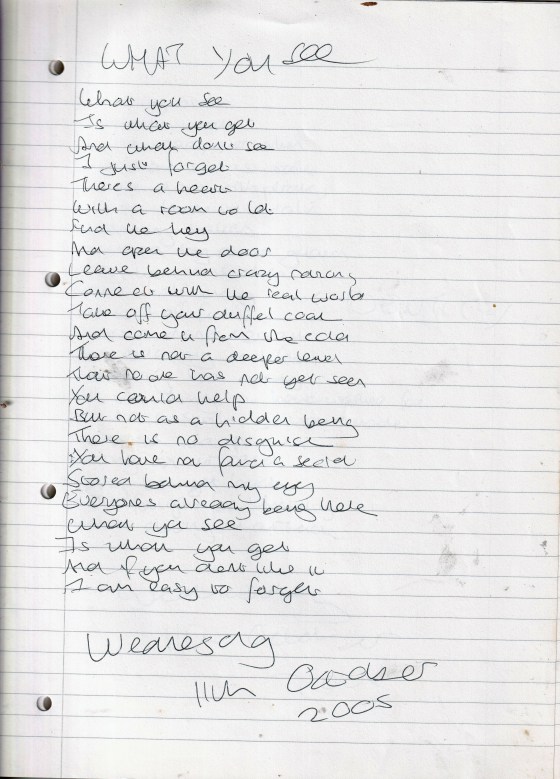 WHAT YOU see
What you see
Is what you get
And what dont see
I just forget
There's a heart
With a room to let
Find the key
And open the door
Leave behind crazy
Connect with the real world
Take off your duffel coat
And come in from the cold
There is not a deeper level
That no one has not yet seen
You cannot help
But not as a hidden being
There is no disguise
You have not found a secret
Stored behind my eyes
Everyones already being here
What you see
Is what you get
And if you dont like it
I am easy to forget
Wednesday
11th October
2005